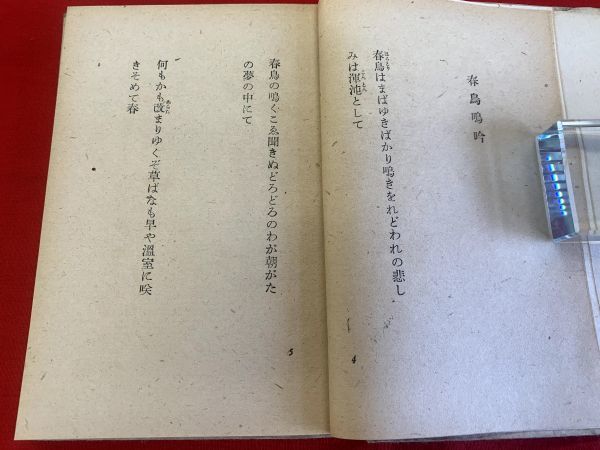 春鳥鳴吟
春鳥はまばゆきばかり鳴きをれどわれの悲し
みは渾沌として
4
春鳥の鳴くこゑ聞きぬどろどろのわが朝がた
の夢の中にて
何もかも改まりゆくぞ草ばなも早や溫室に咲
きそめて春
5